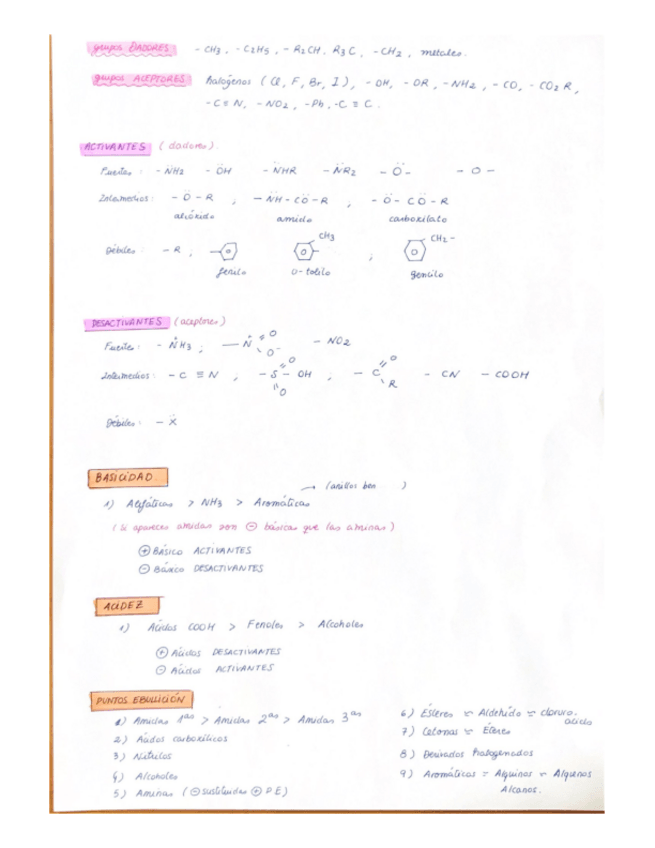 grupos DADORES - CH3, - C2H5, - R2CH, R3C, - CH2, metales.
grupos ACEPTORES halógenos (Cl, F, Br, I), - OH, - OR, - NH2, - CO, - CO2R,
- C ≡ N, - NO2, - Ph, - C ≡ C.
ACTIVANTES (dadores).
Fuertes: - NH2 - OH - NHR - NR2 - O - - O -
Intermedios: - O - R ; - NH - CO - R , - O - CO - R
alcóxido amido carboxilato
Débiles: - R , CH3 ; CH2 -
fenilo o-tolilo bencilo
DESACTIVANTES (aceptores)
Fuerte: - NH3 ; - N O O⁻ - NO2
Intermedios: - C ≡ N ; - S - OH O O , - C O R - CN - COOH
Débiles: - X
BASICIDAD
→ (anillos ben )
1) Alifáticas > NH3 > Aromáticas
(Si aparecen amidas son ⊖ básicas que las aminas)
⊕ BÁSICO ACTIVANTES
⊖ BÁSICO DESACTIVANTES
ACIDEZ
1) Ácidos COOH > Fenoles > Alcoholes
⊕ Ácidos DESACTIVANTES
⊖ Ácidos ACTIVANTES
PUNTOS EBULLICIÓN
1) Amidas 1as > Amidas 2as > Amidas 3as
2) Ácidos carboxílicos
3) Nitrilos
4) Alcoholes
5) Aminas (⊖ sustituidas ⊕ P.E)
6) Ésteres ≃ Aldehído ≃ cloruro. ácido
7) Cetonas ≃ Éteres
8) Derivados halogenados
9) Aromáticos = Alquinos ≃ Alquenos
Alcanos.